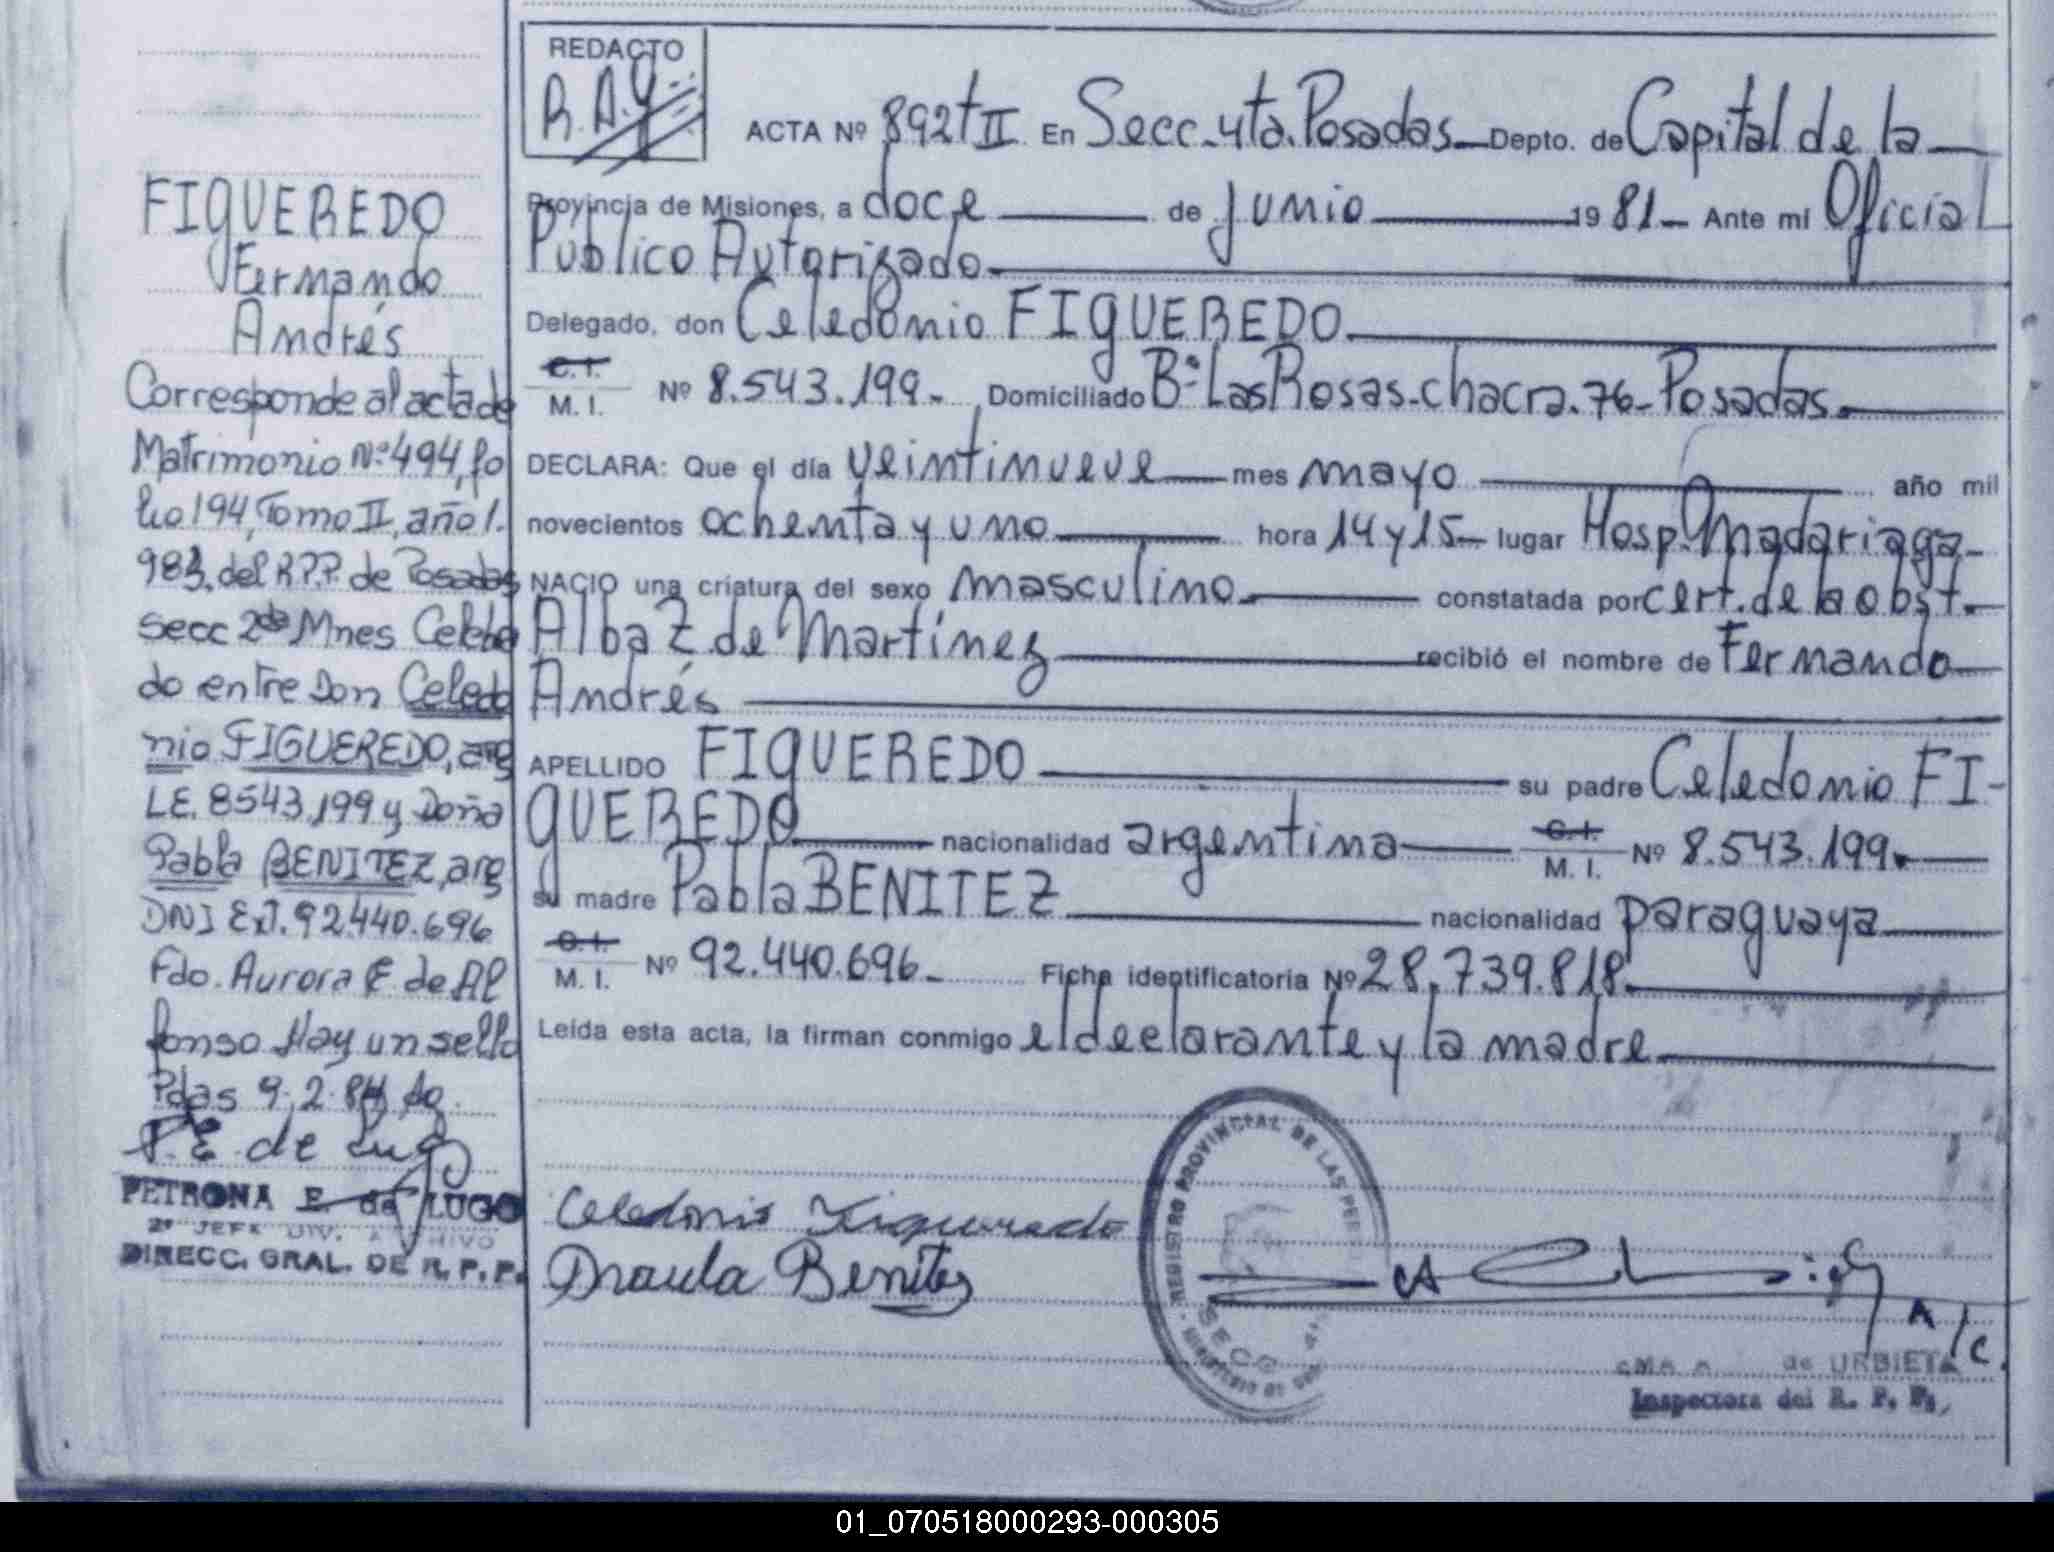 REDACTO
R.A.g.
ACTA Nº 892 t II En Secc. 4ta. Posadas Depto. de Capital de la
Provincia de Misiones, a doce de junio 1981 Ante mí Oficial
Público Autorizado
Delegado, don Celedonio FIGUEREDO
C.I. M. I. Nº 8.543.199. Domiciliado Bº Las Rosas-chacra.76-Posadas.
DECLARA: Que el día veintinueve mes mayo año mil
novecientos ochenta y uno hora 14 y 15 lugar Hosp. Madariaga
NACIO una criatura del sexo masculino constatada por cert. de la obst.
Alba Z. de Martínez recibió el nombre de Fernando
Andrés
APELLIDO FIGUEREDO su padre Celedonio FI-
GUEREDO nacionalidad argentina C.I. M. I. Nº 8.543.199.
su madre Pabla BENITEZ nacionalidad paraguaya
C.I. M. I. Nº 92.440.696. Ficha identificatoria Nº 28.739.818.
Leída esta acta, la firman conmigo el declarante y la madre
Celedonio Figueredo
Benitez
REGISTRO PROVINCIAL DE LAS PER
SECC
A/C.
de URBIETA
Inspectora del R. P. P.
FIGUEREDO
Fernando
Andrés
Corresponde al acta de
Matrimonio Nº 494, fo
lio 194, Tomo II, año 1.
983, del R.P.P. de Posadas
secc 2da Mnes Celebra
do entre Don Celedo
nio FIGUEREDO, arg
LE. 8543.199 y Doña
Pabla BENITEZ, arg
DNI Ext. 92.440.696
Fdo. Aurora E de Al
fonso Hay un sello
Pdas 9.2.84
P. E. de Lugo
PETRONA E. de LUGO
2º JEFE DIV. ARCHIVO
DIRECC. GRAL. DE R. P. P.
01_070518000293-000305